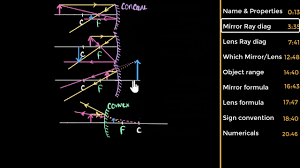 concave
C
F
C
F
F
convex
F
C
Name & Properties 0:13
Mirror Ray diag 3:35
Lens Ray diag 7:41
Which Mirror/Lens 12:48
Object range 14:40
Mirror formula 16:43
Lens formula 17:47
Sign convention 18:40
Numericals 20:46